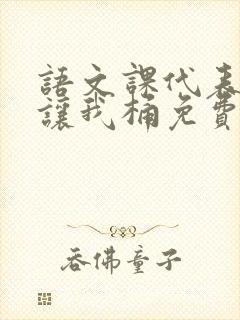 語文課代表
讓我桶免費
吞佛童子